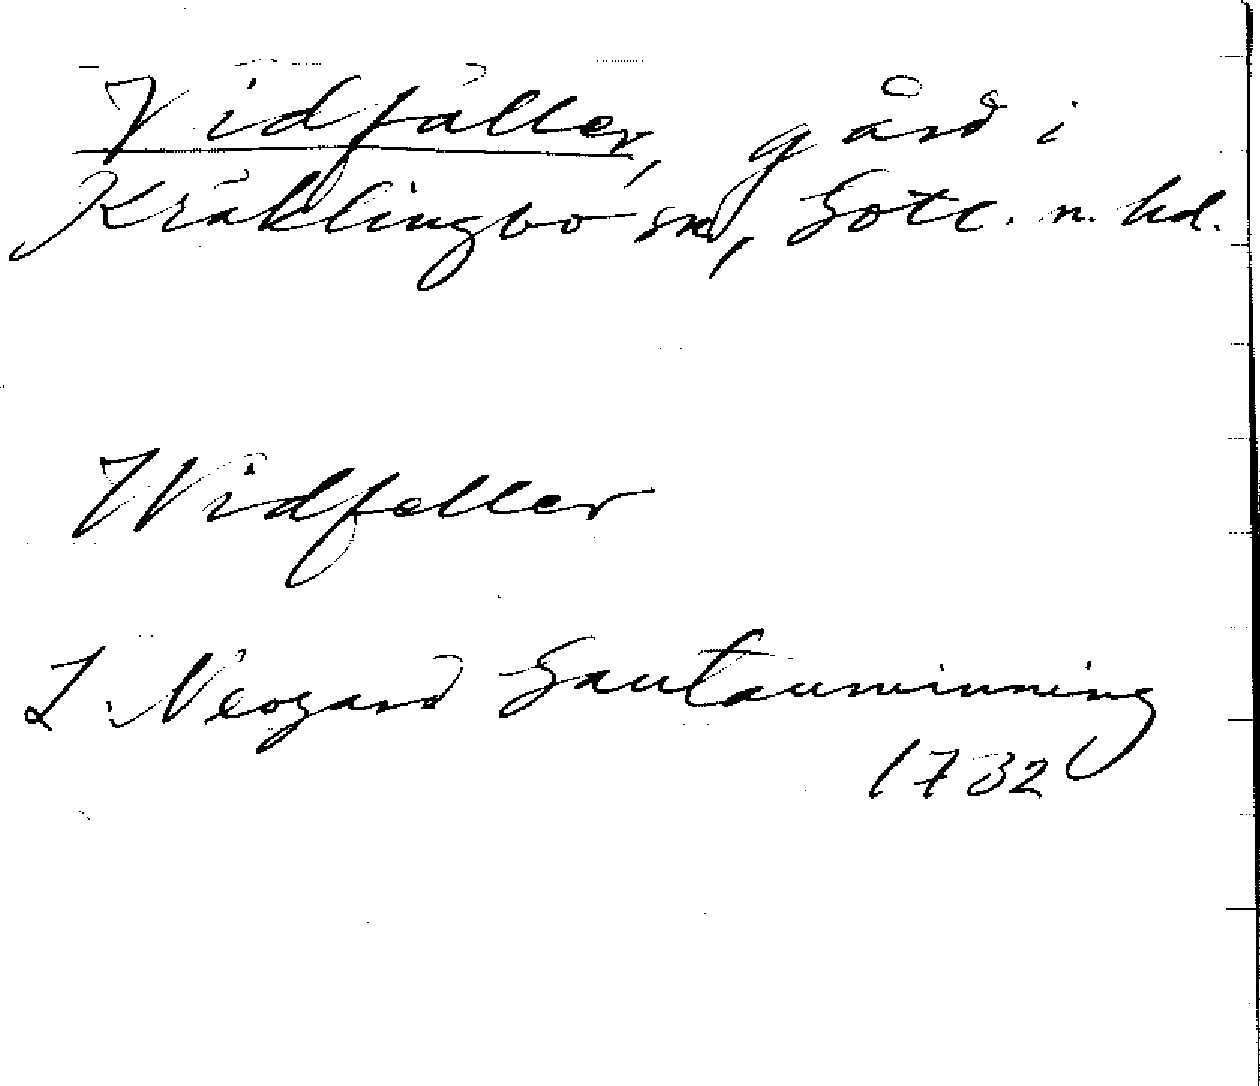 Vidfäller, gård i
Kräklingbo sn, Gotl. n. hd.
Widfeller
L. Neogard Gautauminning
1732